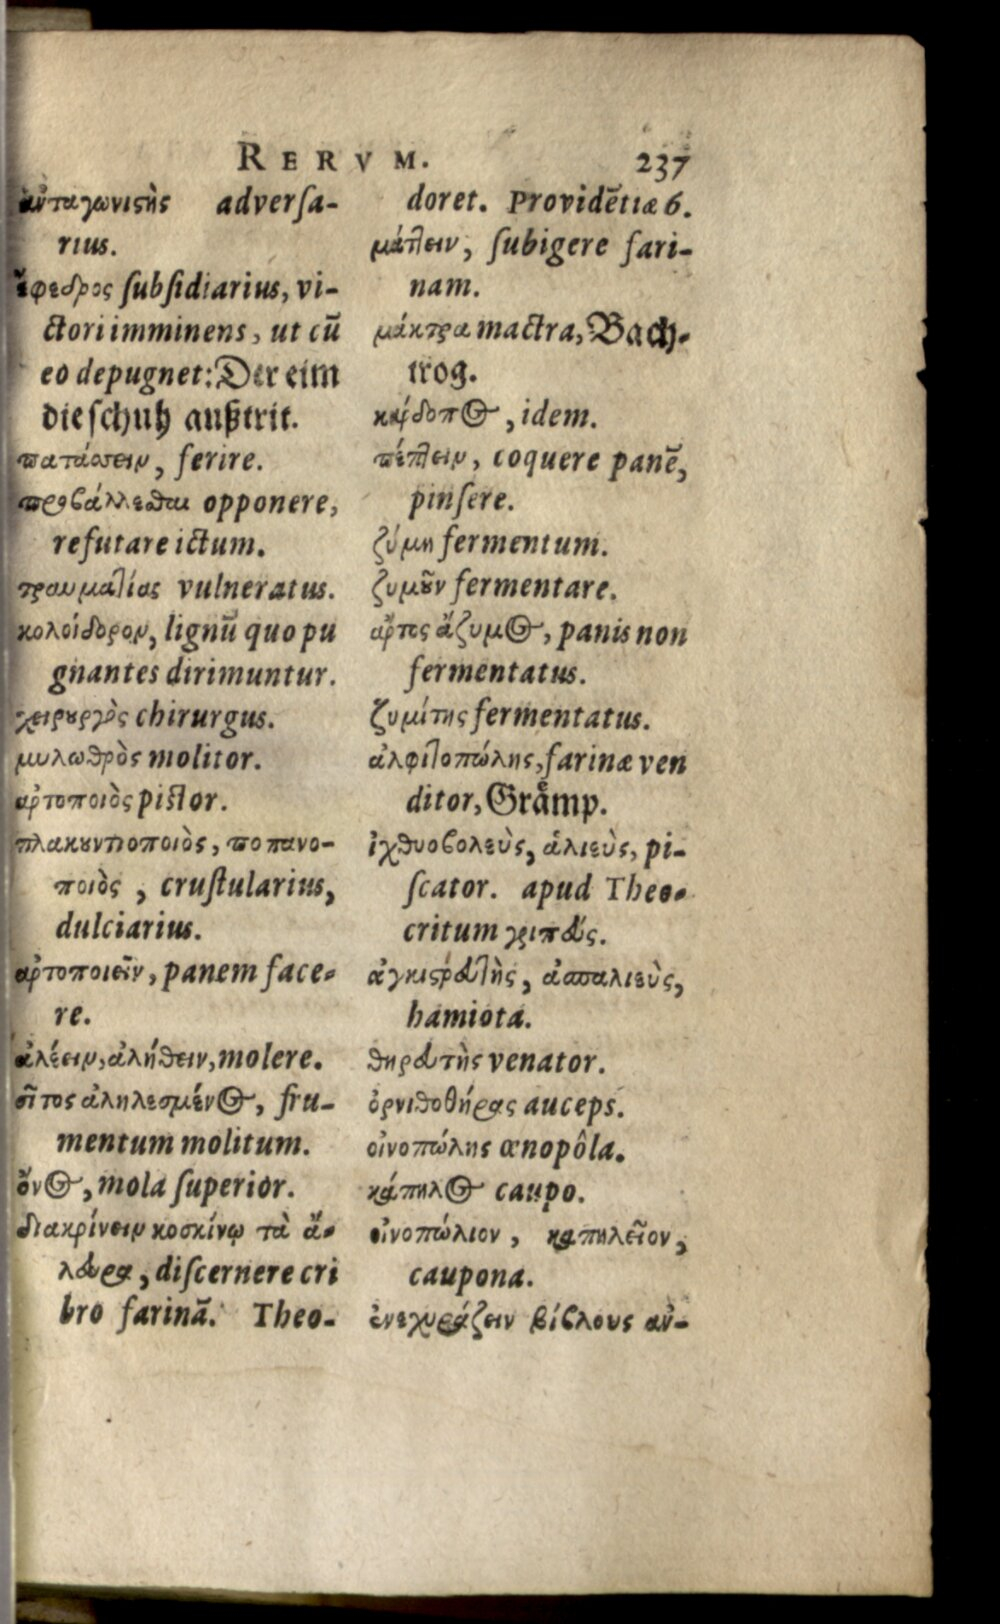 RERVM. 237
ἀνταγωνιϛὴς adverſa-
rius.
ἔφεδρος ſubſidiarius, vi-
ctori imminens, ut cū
eo depugnet: Der eim
die ſchuh außtrit.
πατάσσειν, ferire.
προβάλλεσθαι opponere,
refutare ictum.
τραυματίας vulneratus.
κολοίδορον, lignū quo pu
gnantes dirimuntur.
χειρȣργὸς chirurgus.
μυλωθρὸς molitor.
ἀρτοποιὸς piſtor.
πλακȣντοποιὸς, ποπανο-
ποιὸς, cruſtularius,
dulciarius.
ἀρτοποιεῖν, panem face-
re.
ἀλέειν, ἀλήθειν, molere.
σῖτος ἀληλεσμένος, fru-
mentum molitum.
ὄνος, mola ſuperior.
διακρίνειν κοσκίνῳ τὰ ἄ-
λευρα, diſcernere cri
bro farinā. Theo-
doret. Providētiæ 6.
μάττειν, ſubigere fari-
nam.
μάκτρα mactra, Bach-
trog.
κάρδοπος, idem.
πέπτειν, coquere panē,
pinſere.
ζύμη fermentum.
ζυμȣ͂ν fermentare.
ἄρτος ἄζυμος, panis non
fermentatus.
ζυμίτης fermentatus.
ἀλφιτοπώλης, farinæ ven
ditor, Graͤmp.
ἰχθυοβολεὺς, ἁλιεὺς, pi-
ſcator. apud Theo-
critum γριπεύς.
ἀγκιϛρευτὴς, ἀσπαλιεὺς,
hamiota.
θηρευτὴς venator.
ὀρνιθοθήρας auceps.
οἰνοπώλης œnopôla.
κάπηλος caupo.
οἰνοπώλιον, καπηλεῖον,
caupona.
ἐνεχυράζειν βίβλους ἀν-